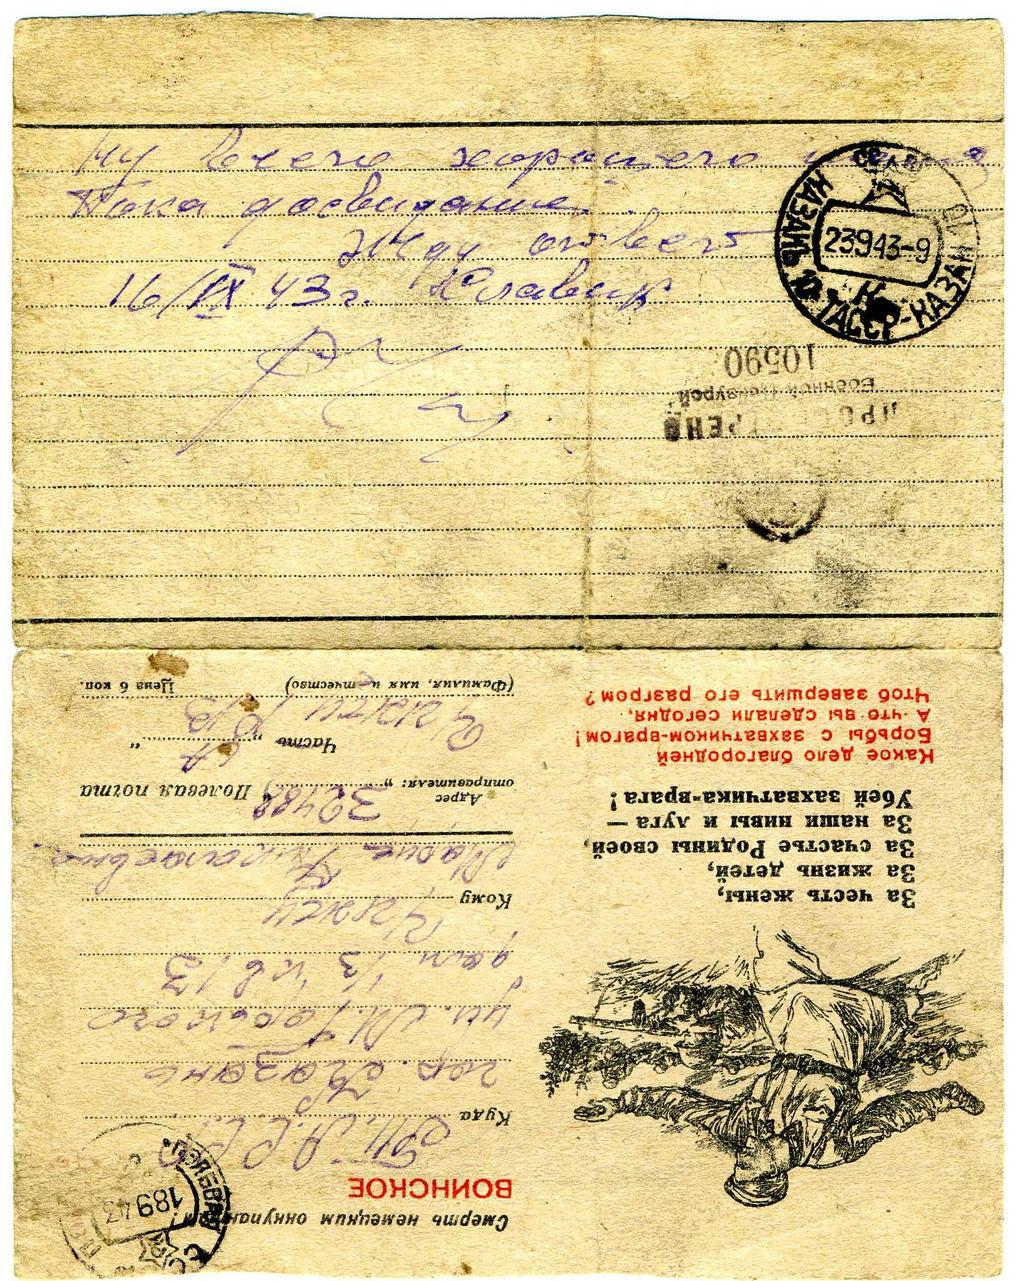 Ну всего хорошего
Пока досвидание.
Жду ответ
16/IX 43 г. Славик
КАЗАНЬ 10 ТАССР-КАЗАН 10
23943-9
ПРОСМОТРЕНО
Военной Цензурой
10590
Смерть немецким оккупантам!
ВОИНСКОЕ
Куда Т.А.С.С.Р.
гор. Казань
ул. М. Горького
дом 1/3 кв 13
Кому Чижу
Марие Николаевне
Адрес отправителя: „ Полевая почта
32488
Часть „ “
А
(Фамилия, имя и отчество)
Цена 6 коп.
18943
За честь жены,
За жизнь детей,
За счастье Родины своей,
За наши нивы и луга —
Убей захватчика-врага!
Какое дело благородней
Борьбы с захватчиком-врагом!
А что вы сделали сегодня,
Чтоб завершить его разгром?